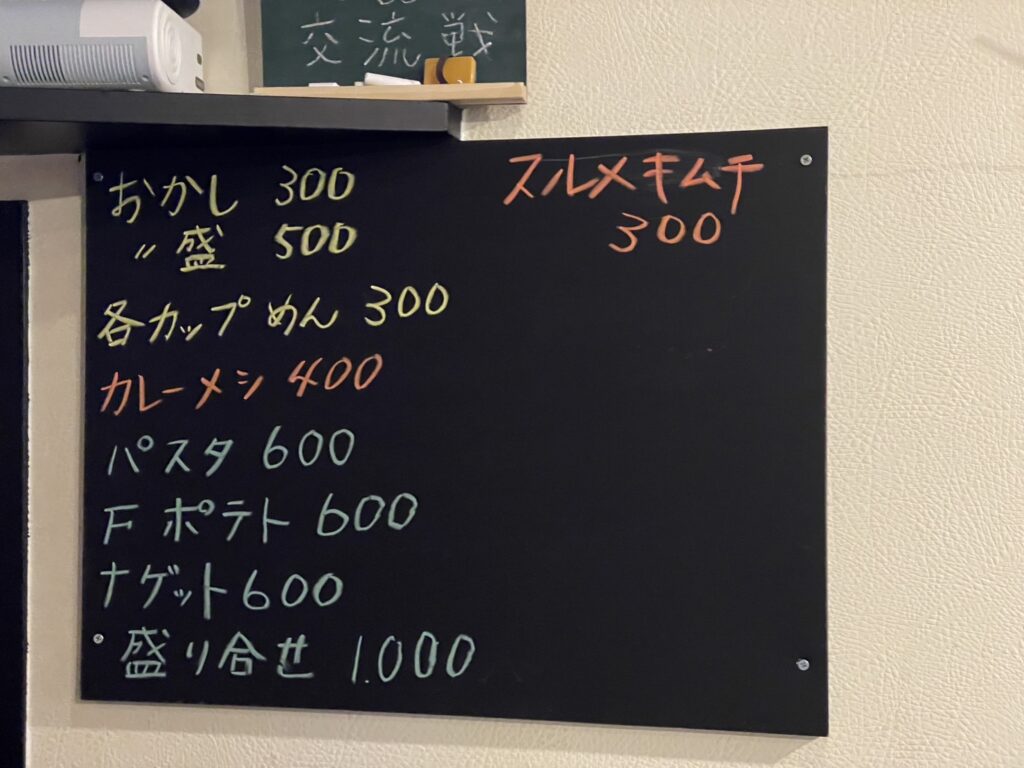 交流戦
おかし 300
〃 盛 500
各カップめん 300
カレーメシ 400
パスタ 600
F ポテト 600
ナゲット 600
盛り合せ 1.000
スルメキムチ
300